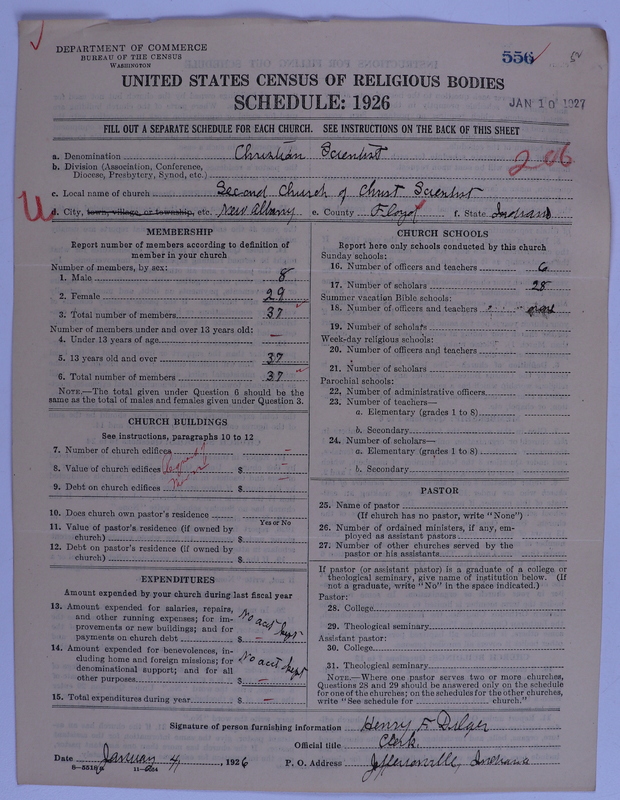 DEPARTMENT OF COMMERCE
BUREAU OF THE CENSUS
WASHINGTON
556
UNITED STATES CENSUS OF RELIGIOUS BODIES
SCHEDULE: 1926
JAN 10 1927
FILL OUT A SEPARATE SCHEDULE FOR EACH CHURCH. SEE INSTRUCTIONS ON THE BACK OF THIS SHEET
a. Denomination Christian Scientist
206
b. Division (Association, Conference, Diocese, Presbytery, Synod, etc.)
c. Local name of church Second Church of Christ Scientist
d. City, town, village, or township, etc. New Albany e. County Floyd f. State Indiana
MEMBERSHIP
Report number of members according to definition of
member in your church
Number of members, by sex:
1. Male 8
2. Female 29
3. Total number of members 37
Number of members under and over 13 years old:
4. Under 13 years of age —
5. 13 years old and over 37
6. Total number of members 37
NOTE.—The total given under Question 6 should be
same as the total of males and females given under Question 3.
CHURCH BUILDINGS
See instructions, paragraphs 10 to 12
7. Number of church edifices —
8. Value of church edifices $ —
9. Debt on church edifices $ —
10. Does church own pastor's residence
Yes or No
11. Value of pastor's residence (if owned by
church) $
12. Debt on pastor's residence (if owned by
church) $
EXPENDITURES
Amount expended by your church during last fiscal year
13. Amount expended for salaries, repairs,
and other running expenses; for im-
provements or new buildings; and for
payments on church debt $ — No acct kept
14. Amount expended for benevolences, in-
cluding home and foreign missions; for
denominational support; and for all
other purposes $ — No acct kept
15. Total expenditures during year $ —
CHURCH SCHOOLS
Report here only schools conducted by this church
Sunday schools:
16. Number of officers and teachers 6
17. Number of scholars 28
Summer vacation Bible schools:
18. Number of officers and teachers
19. Number of scholars
Week-day religious schools:
20. Number of officers and teachers
21. Number of scholars
Parochial schools:
22. Number of administrative officers
23. Number of teachers—
a. Elementary (grades 1 to 8)
b. Secondary
24. Number of scholars—
a. Elementary (grades 1 to 8)
b. Secondary
PASTOR
25. Name of pastor
(If church has no pastor, write "None")
26. Number of ordained ministers, if any, em-
ployed as assistant pastors
27. Number of other churches served by the
pastor or his assistants
If pastor (or assistant pastor) is a graduate of a college or
theological seminary, give name of institution below. (If
not a graduate, write "No" in the space indicated.)
Pastor:
28. College
29. Theological seminary
Assistant pastor:
30. College
31. Theological seminary
NOTE.—Where one pastor serves two or more churches,
Questions 28 and 29 should be answered only on the schedule
for one of the churches; on the schedules for the other churches,
write "See schedule for church."
Signature of person furnishing information Henry F. Dilger
Official title Clerk
Date January 4, 1926 P. O. Address Jeffersonville, Indiana